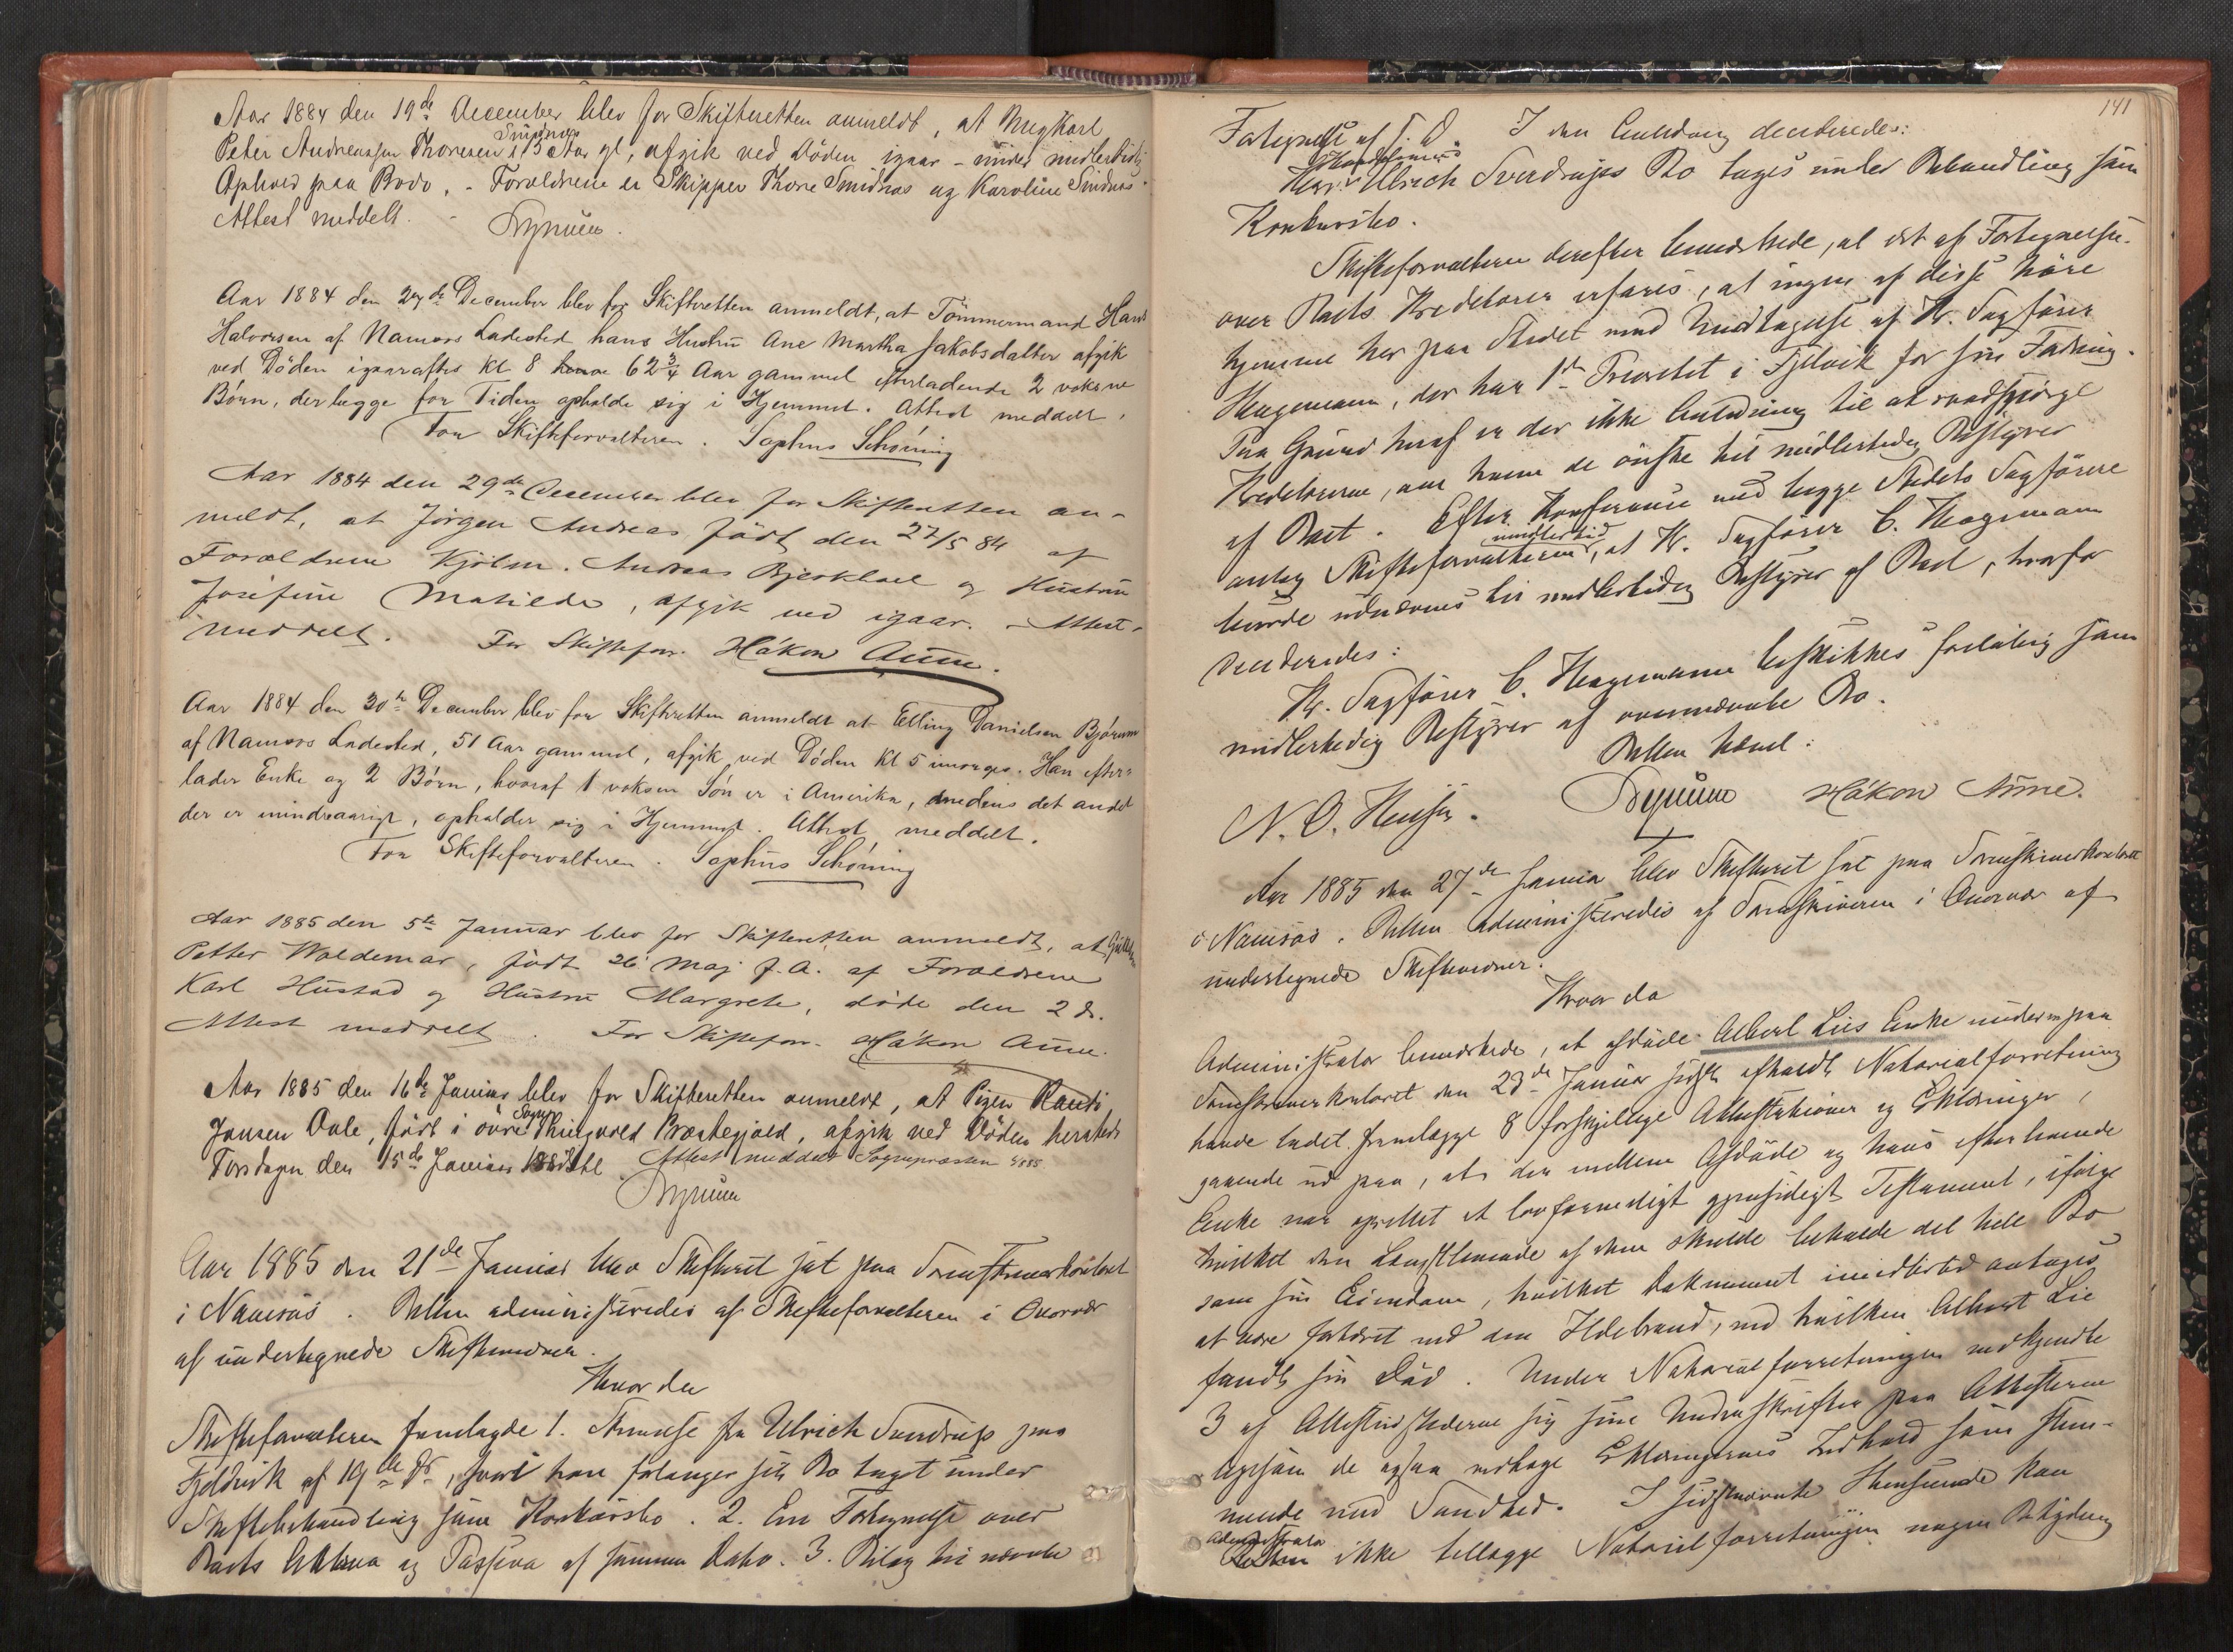 Aar 1884 den 19de December blev for Skifteretten anmeldt, at Ungkarl
Smidnæs
Peter Andreassen Thoresen, 13 Aar gl, afgik ved Døden igaar - under midlertidig
Ophold paa Bodø. - Forældrene er Skipper Thore Smidnæs og Karoline Smidnæs.
Attest meddelt.
Aar 1884 den 27de December blev for Skifteretten anmeldt, at Tömmermand Hans
Halvorsen af Namsos Ladested hans Hustru Ane Martha Jakobsdatter afgik
ved Döden igaaraftes Kl 8 62 3/4 Aar gammel efterladende 2 voksne
Börn, der begge for Tiden opholde sig i Hjemmet. Attest meddelt.
For Skifteforvalteren. Sophus Schöning
Aar 1884 den 29de December blev for Skifteretten an-
meldt, at Jörgen Andreas født den 27/5 84 af
Forældrene Kjöbm. Andreas Bjerklael og Hustru
Josefine Matilde, afgik ved igaar. - Attest
meddelt. For Skiftefor. Håkon Aune.
Aar 1884 den 30te December blev for Skifteretten anmeldt at Elling Danielsen Bjørum
af Namsos Ladested, 51 Aar gammel, afgik ved Döden Kl 5 imorges. Han efter-
lader Enke og 2 Börn, hvoraf 1 voksen Sön er i Amerika, medens det andet
der er mindreaarigt, opholder sig i Hjemmet. Attest meddelt.
For Skifteforvalteren. Sophus Schöning
Aar 1885 den 5te Januar blev for Skifteretten anmeldt, at
Petter Waldemar, født 26 Maj f. A. af Forældrene
Karl Hustad og Hustru Margrete, døde den 2 ds.
Attest meddelt. For Skiftefor. Håkon Aune.
Aar 1885 den 16de Januar blev for Skifteretten anmeldt, at Pigen Randi
Sogn
Jonsen Dale, født i övre Ringvold Præstegjeld, afgik ved Döden hersteds
Torsdagen den 15de Januar Attest meddelt Sognepresten
Aar 1885 den 21de Januar blev Skifteret sat paa Sorenskriverkontoret
i Namsos. Retten administreredes af Skifteforvalteren i Overvær
af undertegnede Skiftevidner.
Hvor da
Skifteforvalteren fremlagde 1. Skrivelse fra Ulrich Sverdrup paa
Fjeldvik af 19de ds, hvori han forlanger sit Bo taget under
Skiftebehandling som Konkursbo. 2. En Fortegnelse over
Boets Aktiva og Passiva af samme Dato. 3. Bilag til nævnte
141
Fortegnelse af T. D. I den Anledning decideredes:
Handelsmand
Ulrich Sverdrups Bo tages under Behandling som
Konkursbo.
Skifteforvalteren derefter bemærkede, at det af Fortegnelsen
over Boets Kreditorer erfares, at ingen af disse høre
hjemme her paa Stedet med Undtagelse af Hr. Sagfører
Hagemann, der har 1ste Prioritet i Fjelvik for sin Fordring.
Paa Grund heraf er der ikke Anledning til at raadspørge
Kreditorerne, om hvem de ønske til midlertidig Bestyrer
af Boet. Efter Konference med begge Stedets Sagførere
imidlertid
antog Skifteforvalteren, at Hr. Sagfører C. Hagemann
burde udnævnes til midlertidig Bestyrer af Boet, hvorfor
decideredes:
Hr. Sagfører C. Hagemann beskikkes foreløbig som
midlertidig Bestyrer af ovennævnte Bo.
Retten hævet:
N. O. Hansen. Håkon Aune.
Aar 1885 den 27de Januar blev Skifteret sat paa Sorenskriverkontoret
i Namsos. Retten administreredes af Sorenskriveren i Overvær af
undertegnede Skiftevidner.
Hvor da
Administrator bemærkede, at afdøde Albert Lies Enke under en paa
Sorenskriverkontoret den 23de Januar sidstl. afholdt Notarialforretning
havde ladet fremlægge 8 forskjellige Attestationer og Erklæringer,
gaaende ud paa, at der mellem Afdøde og hans efterlevende
Enke var oprettet et lovformeligt gjensidigt Testament, ifølge
hvilket den Længstlevende af dem skulde beholde det hele Bo
som sin Eiendom, hvilket Dokument imidlertid antages
at være fortæret ved den Ildebrand, ved hvilken Albert Lie
fandt sin Død. Under Notarialforretningen vedkjendte
3 af Attestudstederne sig sine Underskrifter paa Attesterne
ligesom de ogsaa vedtoge Erklæringernes Indhold som stem-
mende med Sandhed. I sidstnævnte Henseende kan
Administrator
ikke tillægge Notarialforretningen nogen Betydning